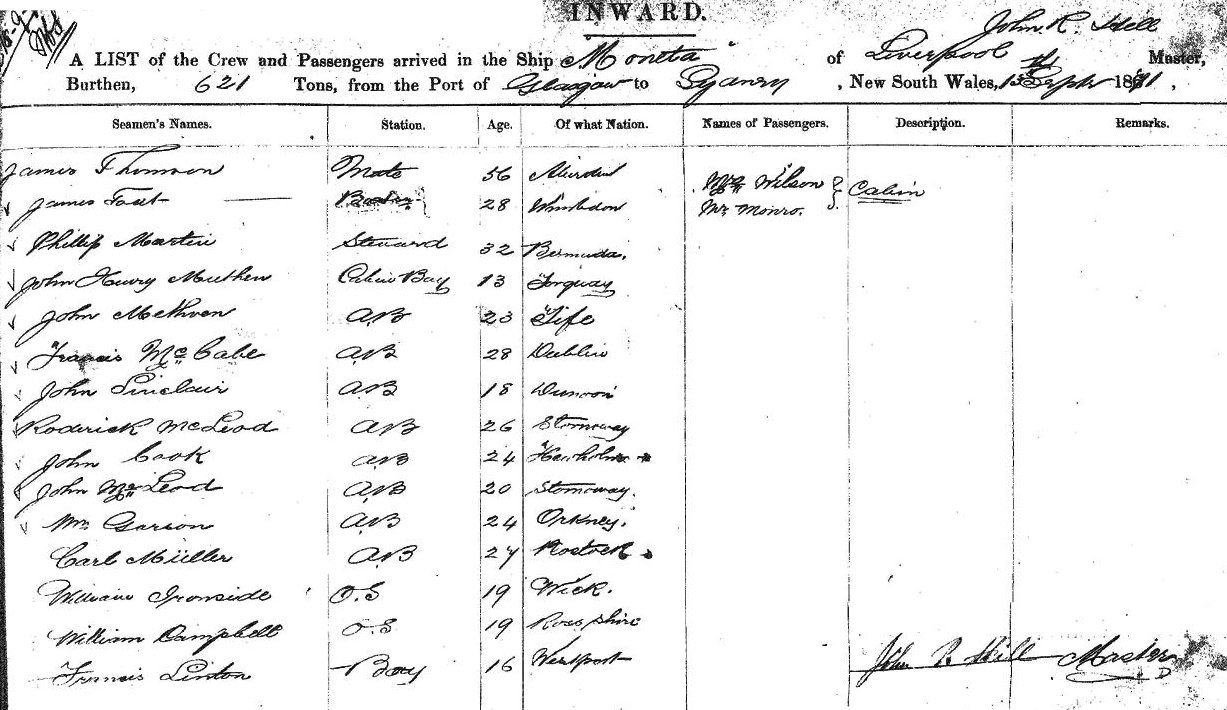 INWARD.
John R. Hill
A LIST of the Crew and Passengers arrived in the Ship Moneta of Liverpool Master,
Burthen, 621 Tons, from the Port of Glasgow to Sydney, New South Wales, 13th Septr 1871.
Seamen's Names. Station. Age. Of what Nation. Names of Passengers. Description. Remarks.
James Thomson Mate 56 Aberdeen
Mrs Wilson Cabin
James 28 Wimbledon Mr Monro.
Phillip Martin Steward 32 Bermuda.
John Henry Cabin Boy 13 Torquay
John Methven AB 23 Fife
Francis McCabe AB 28 Dublin
John Sinclair AB 18 Dunoon
Roderick McLeod AB 26 Stornoway
John Cook AB 24
John McLeod AB 20 Stornoway.
Wm Garson AB 24 Orkney.
Carl Müller AB 27 Rostock
William Ironside O.S 19 Wick.
William Campbell O.S 19 Ross shire
Francis Linton Boy 16 Westport
John R. Hill Master